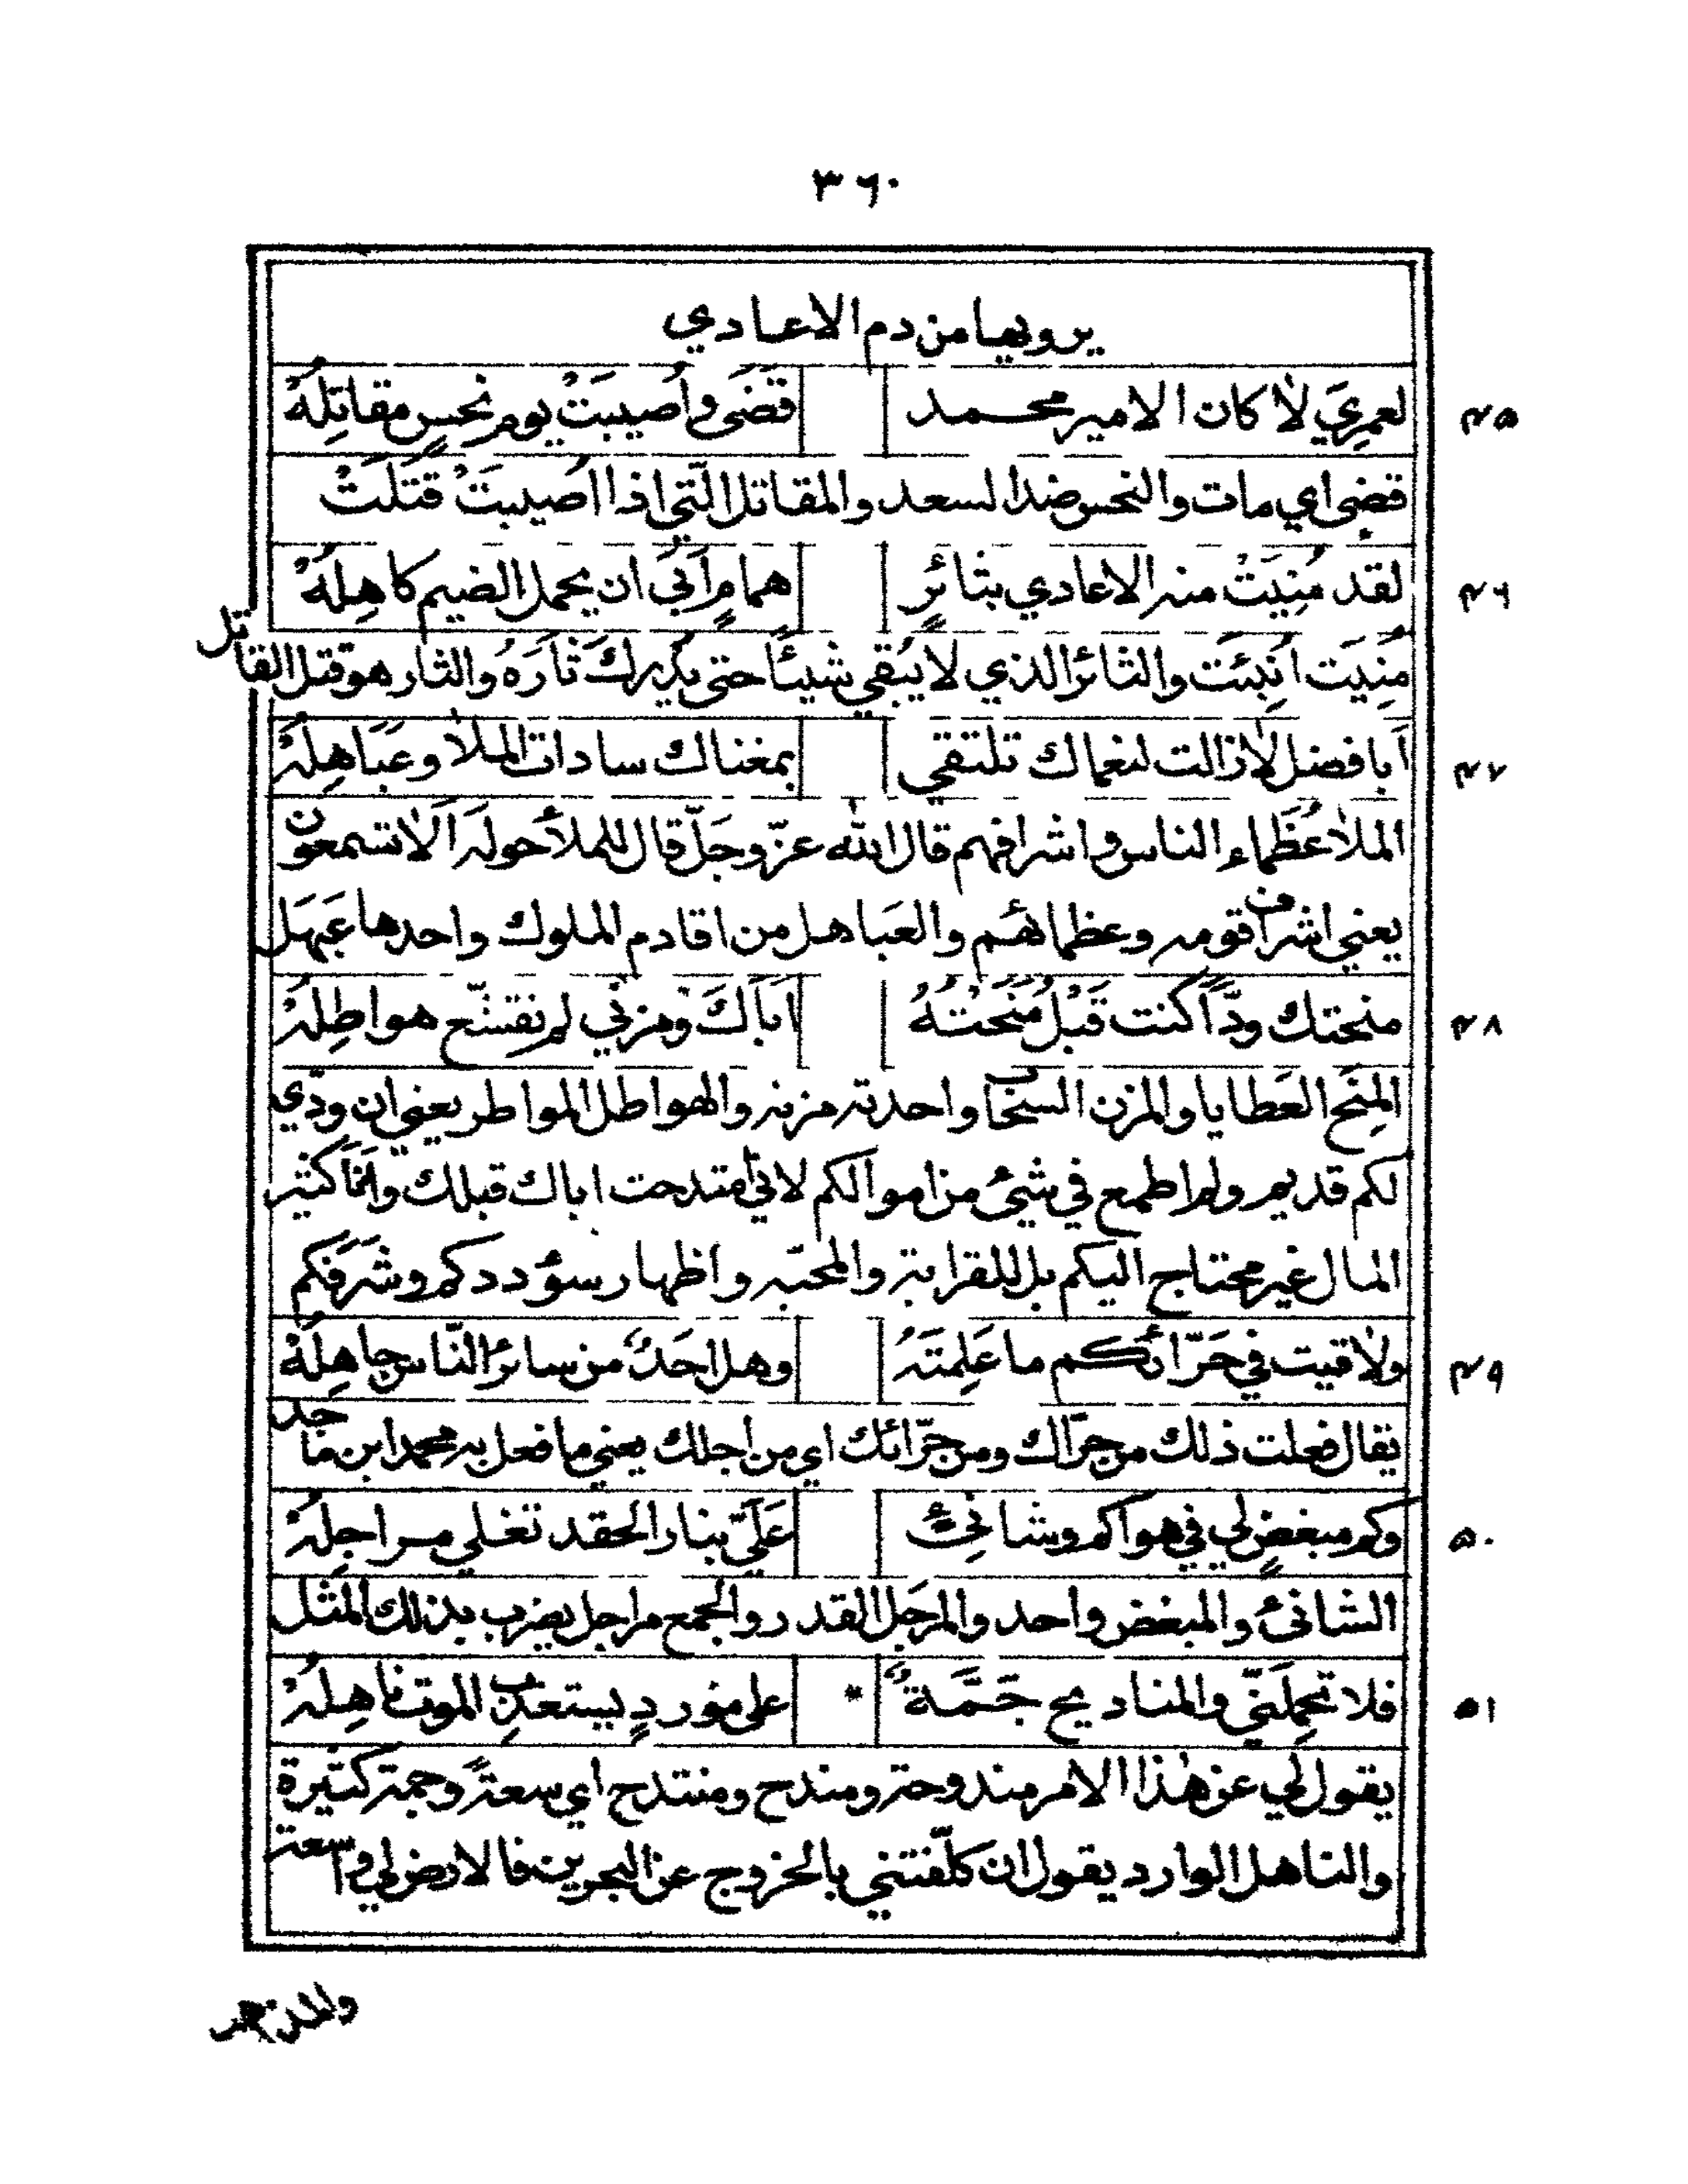 ٣٦٠
يرويها من دم الاعادي
٤٥ لعمرِيَ لاٰ كان الامير محمد قَضَى وأُصيبَتْ يوم نحسٍ مقاتِلُهْ
قضى اي مات والنحس ضد السعد والمقاتل الّتي اذا اُصيبَتْ قَتَلَتْ
٤٦ لقد مُنِيَتْ منه الاعادي بثائرٍ همامٍ اَبَى ان يحمل الضيم كاهِلُهْ
مُنِيَت اُنْبِئَت والثائر الذي لا يُبْقي شيئًا حتى يُدْرِكَ ثَارَهُ والثار هو قتل القاتل
٤٧ اَبا فضل لاٰ زالت لنعماك تلتقي بمغناك سادات الملاٰ وعَبَاهِلُهْ
الملاٰ عُظَماء الناس واشرافهم قال الله عزّ وجلّ قال للملأ حوله اَلاٰ تسمعون
يعني اشراف قومه وعظمائهم والعَباهل من اقادم الملوك واحدها عَبهَل
٤٨ منحتك ودًّا كنت قَبْلُ مُنَحْتُهُ اَباَكَ ومزني لم تقشّع هواطِلُهْ
المِنَح العَطايا والمزن السحاب واحدته مزنه والهواطل المواطر يعني ان ودّي
لكم قديم ولم اطمع في شيئ من اموالكم لاني امتدحت اباك قبلك وانا كثير
المال غير محتاج اليكم بل للقرابة والمحبّه واظهار سؤددكم وشَرَفكم
٤٩ ولاٰقيت في جَرّائكم ما عَلِمتَهُ وهل اَحَدٌ من سائر النّاس جاهِلُهْ
يقال فعلت ذلك من جرّاك ومن جرّائك اي من اجلك يعني ما فعل به محمد ابن ماجد
٥٠ وكم مبغضٍ لي في هواكم وشانِئٍ عَلَيَّ بنار الحقد تغلي مراجِلُهْ
الشانئ والمبغض واحد والمرجل القدر والجمع مراجل يضرب بذلك المثل
٥١ فلا تحمِلَنّي والمناديح جَمَّةٌ * على مورِدٍ يستعذِب الموت ناهِلُهْ
يقول لي عن هٰذا الامر مندوحة ومندح ومنتدح اي سعةً وجمة كثيرة
والناهل الوارد يقول ان كلّفتني بالخروج عن البحرين فالارض لي واسعة